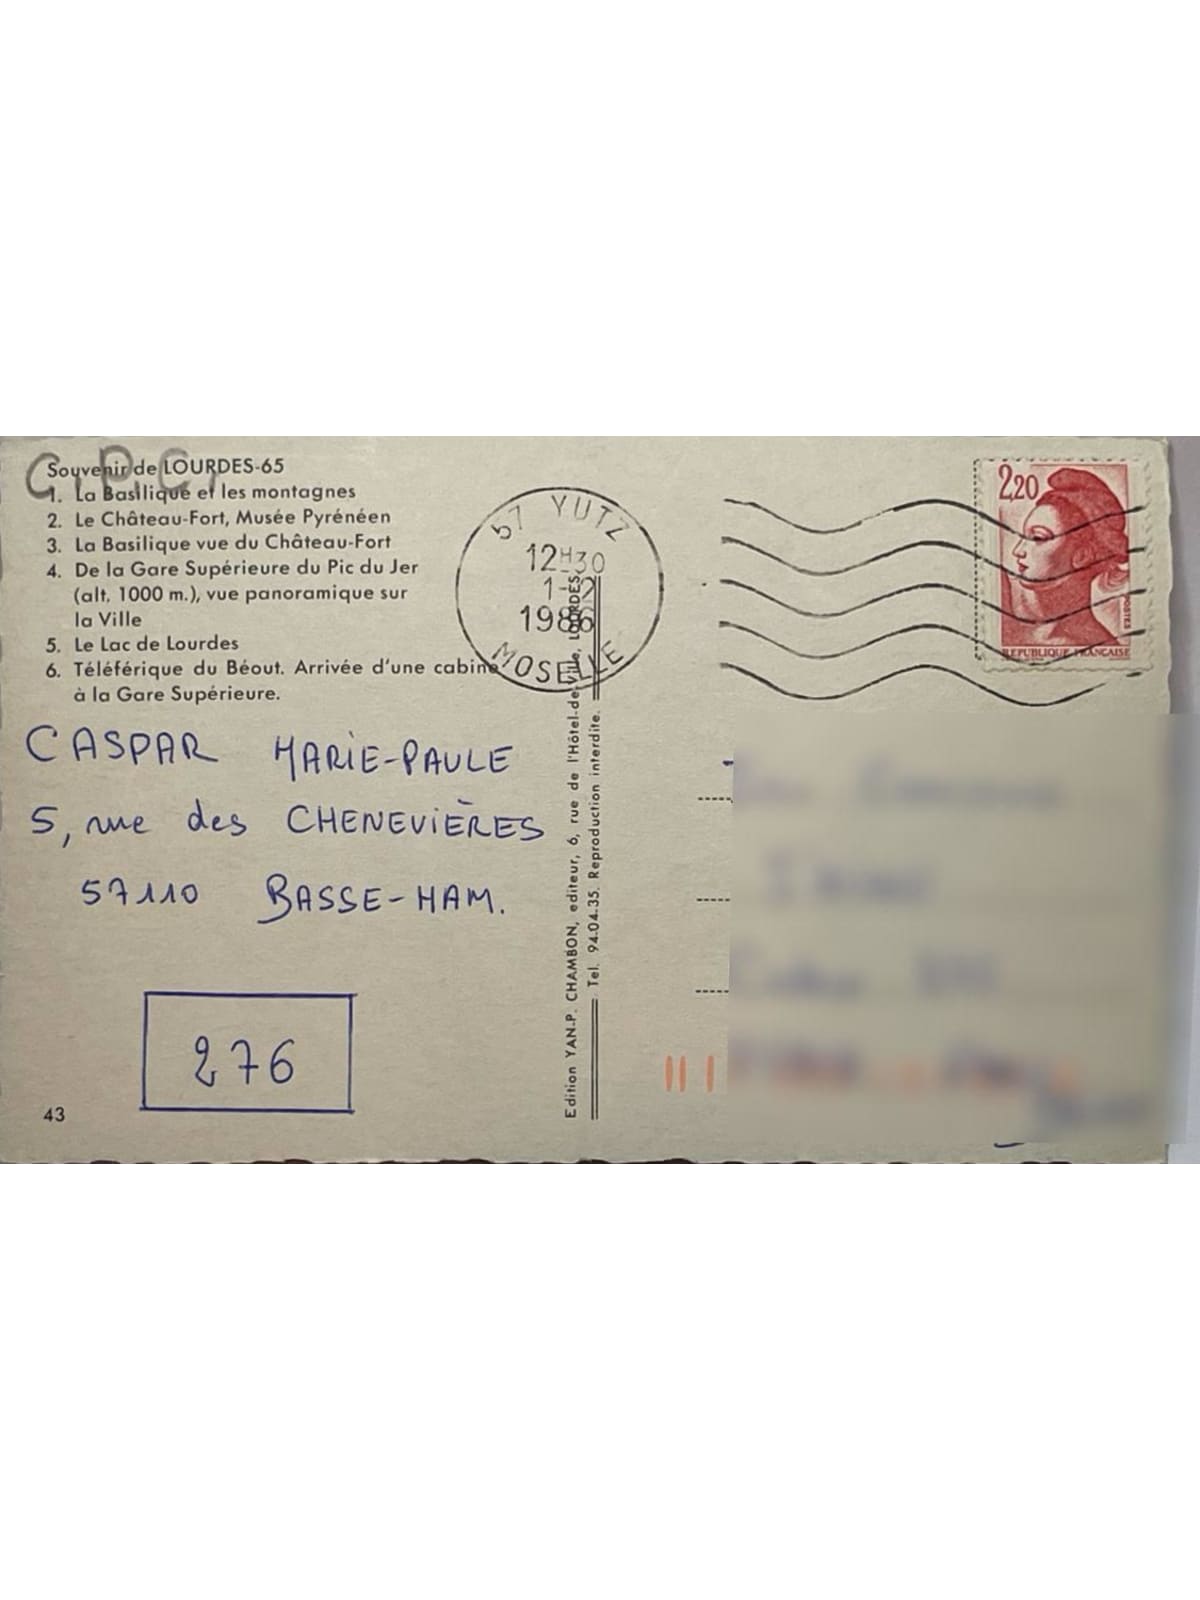 C.P.C.
Souvenir de LOURDES-65
1. La Basilique et les montagnes
2. Le Château-Fort, Musée Pyrénéen
3. La Basilique vue du Château-Fort
4. De la Gare Supérieure du Pic du Jer
(alt. 1000 m.), vue panoramique sur
la Ville
5. Le Lac de Lourdes
6. Téléférique du Béout. Arrivée d'une cabine
à la Gare Supérieure.
57 YUTZ
12H30
1-12
1986
MOSELLE
2,20
POSTES
REPUBLIQUE FRANCAISE
CASPAR MARIE-PAULE
5, rue des CHENEVIÈRES
57110 BASSE-HAM.
276
43
Edition YAN-P. CHAMBON, editeur, 6, rue de l'Hôtel-de-Ville, LOURDES
Tel. 94-04-35. Reproduction interdite.